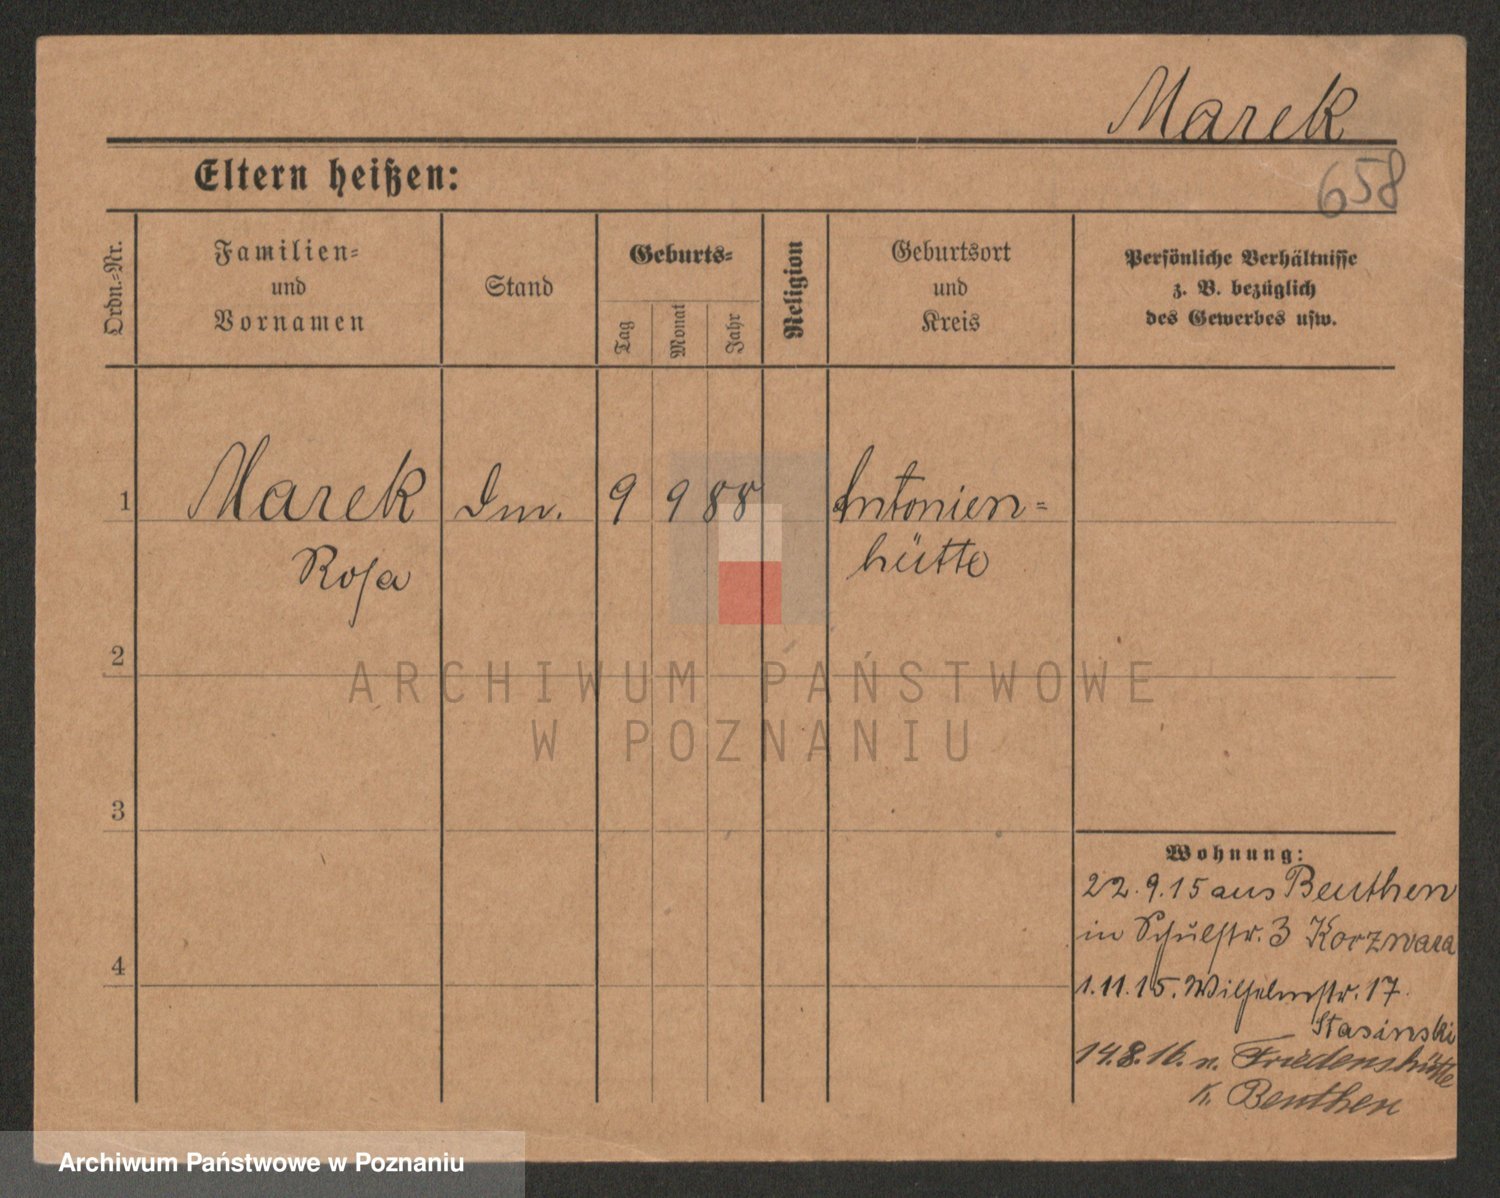 Marek
658
Eltern heißen:
Ordn.-Nr.
Familien-
und
Vornamen
Stand
Geburts-
Tag
Monat
Jahr
Religion
Geburtsort
und
Kreis
Persönliche Verhältnisse
z. B. bezüglich
des Gewerbes usw.
1
Marek
Rosa
9 9 88
Antonien-
hütte
2
3
4
ARCHIWUM PAŃSTWOWE
W POZNANIU
Wohnung:
22.9.15 aus Beuthen
in Schulstr. 3
1.11.15. Wilhelmstr. 17.
Stasinski
14.8.16. n. Friedenshütte
K. Beuthen
Archiwum Państwowe w Poznaniu